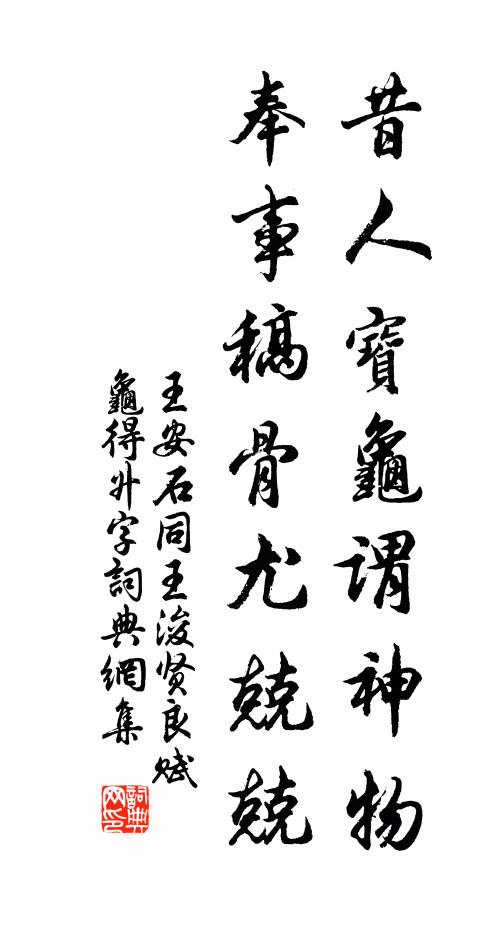 昔人寶龜謂神物
奉事槁骨尤兢兢
王安石同王浚賢良賦
龜得升字詞典網集
詞典
网印